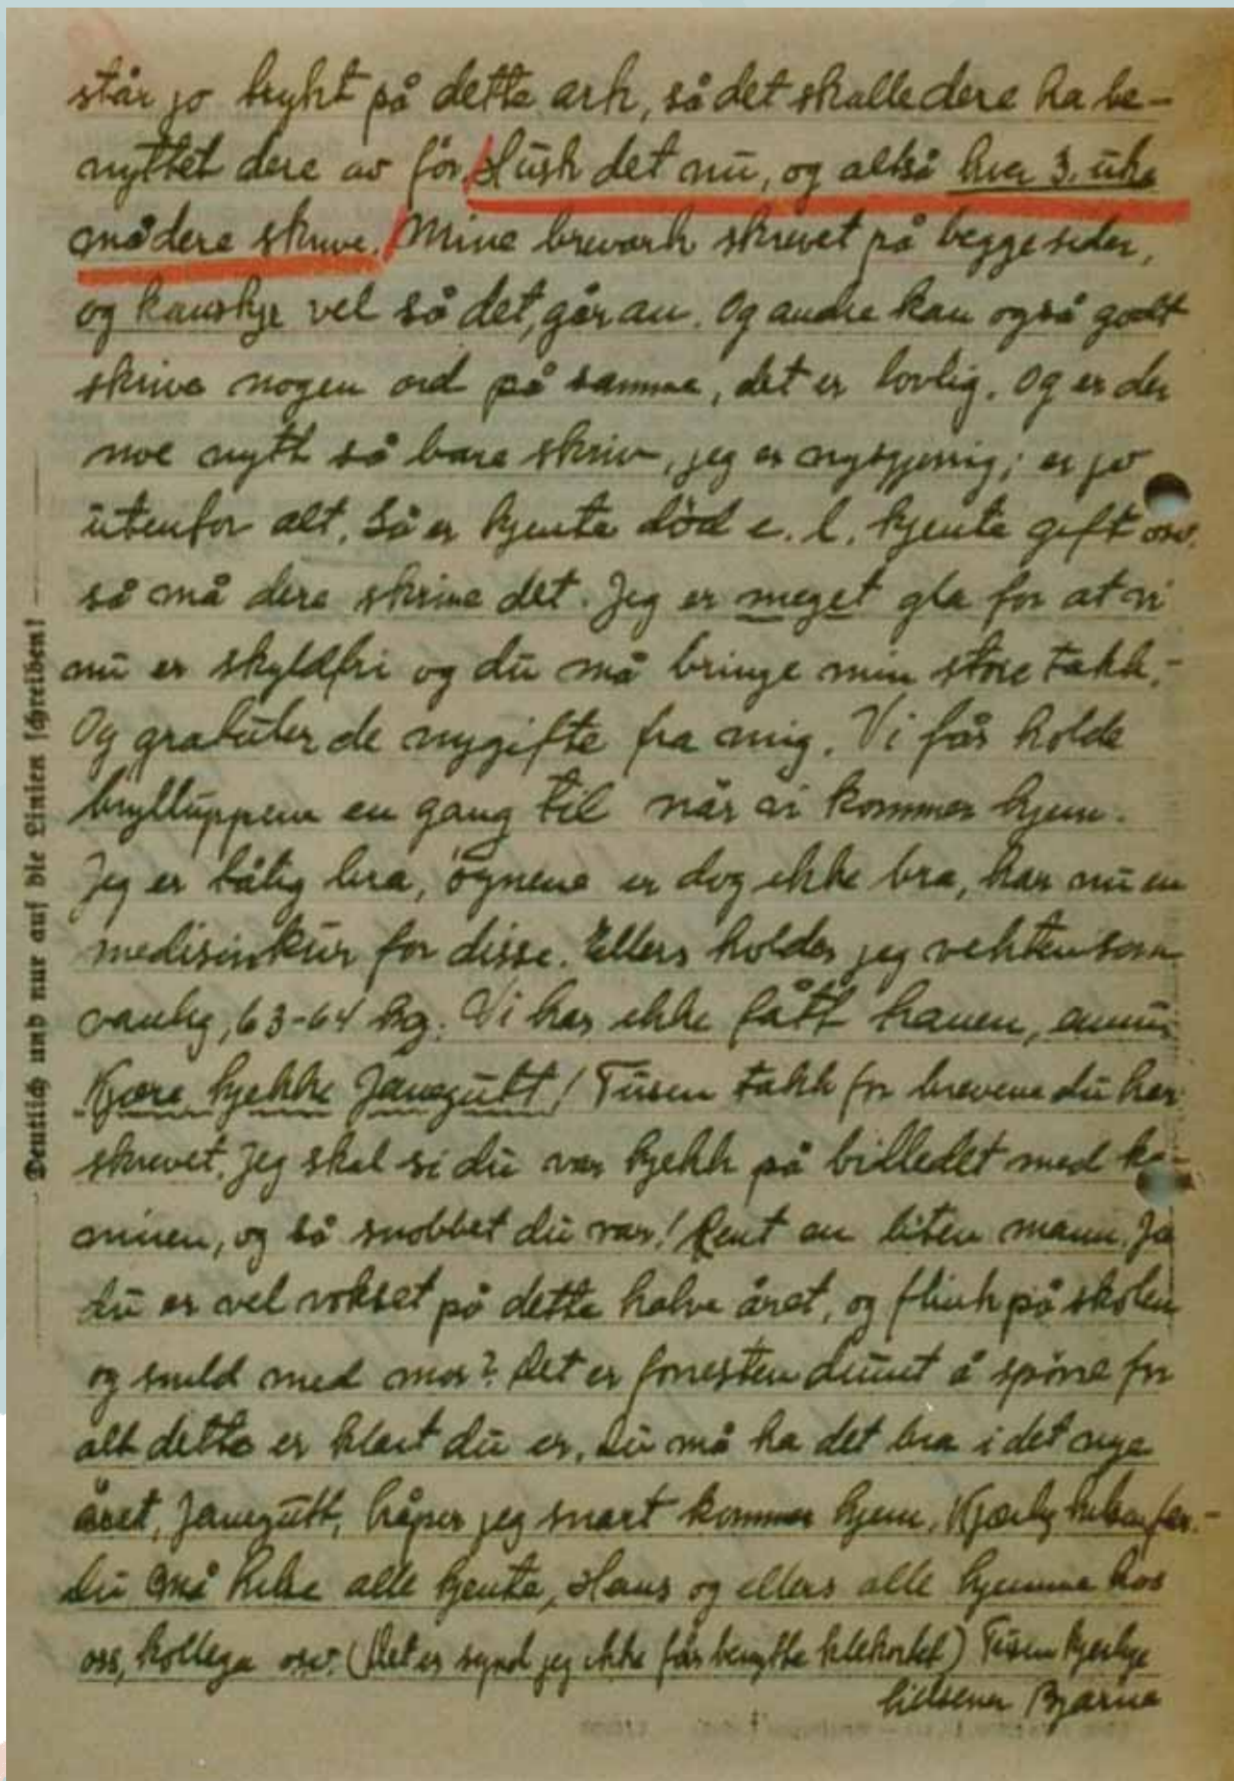 står jo trykt på dette ark, så det skulle dere ha be-
nyttet dere av før. Husk det nu, og altså hver 3. uke
må dere skrive. Mine brevark skrevet på begge sider,
og kanskje vel så det, går an. Og andre kan også godt
skrive nogen ord på samme, det er lovlig. Og er der
noe nytt så bare skriv, jeg er nysgjerrig; er jo
utenfor alt. Så er kjente död e. l. kjente gift osv.
så må dere skrive det. Jeg er meget gla for at vi
nu er skyldfri og du må bringe min store takk.-
Og gratuler de nygifte fra mig. Vi får holde
brylluppene en gang til når vi kommer hjem.
Jeg er bålig bra, öynene er dog ikke bra, har nu en
medisinkur for disse. Ellers holder jeg vekten som
vanlig, 63-64 kg. Vi har ikke fått haven, ennu.
Kjære kjekke Janegutt! Tusen takk for brevene du har
skrevet. Jeg skal si du var kjekk på billedet med ka-
ninen, og så snobbet du var! Rent en liten mann. Ja
du er vel vokset på dette halve året, og flink på skolen
og snild med mor? Det er forresten dumt å spörre for
alt dette er klart du er. Du må ha det bra i det nye
året, Janegutt, håper jeg snart kommer hjem. Kjærlig hilsen far.-
Du må hilse alle kjente, Hans og ellers alle hjemme hos
oss, kollega osv. (Det er synd jeg ikke får benytte klekortet) Tusen kjerlige
hilsener Bjarne
Deutlich und nur auf die Linien schreiben!